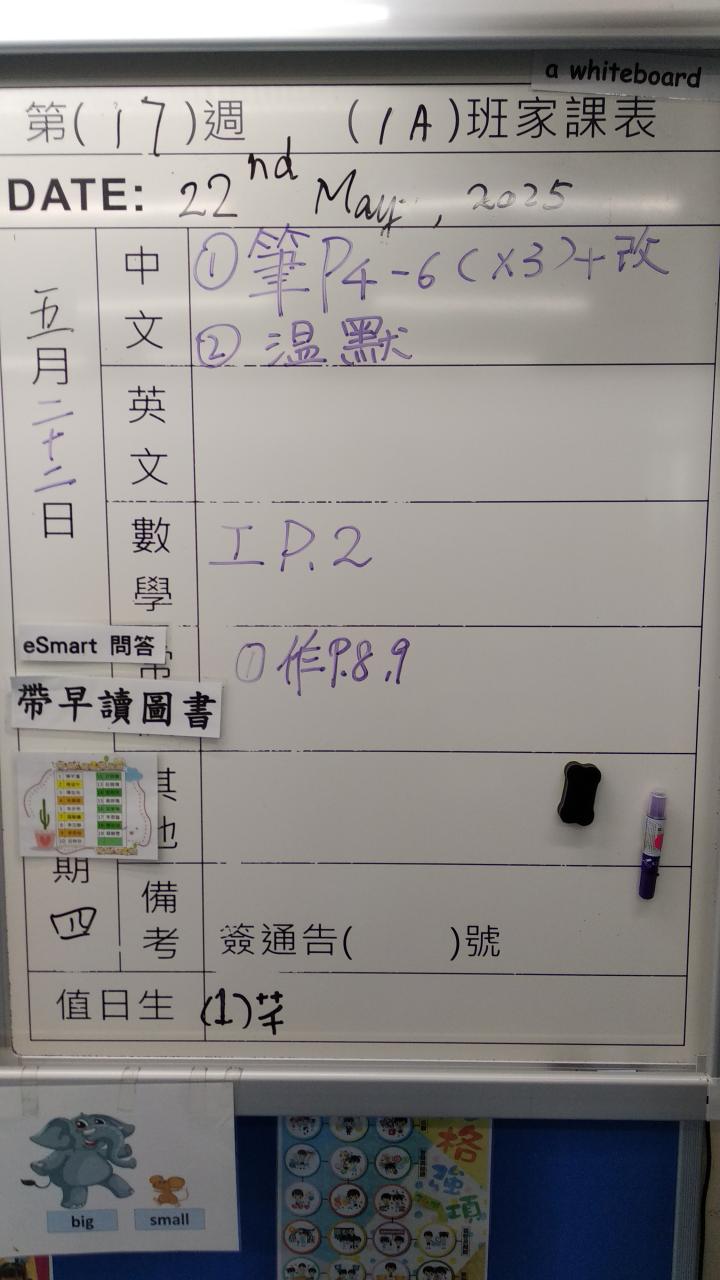 a whiteboard
第(17)週 (1A)班家課表
DATE: 22nd May, 2025
五月二十二日
期四
中文
① 筆P4-6(x3)+改
② 温默
英文
數學
工 P.2
eSmart 問答
帶早讀圖書
① 作P.8,9
其他
備考
簽通告( )號
值日生
(1)芊
big
small
格
強
項